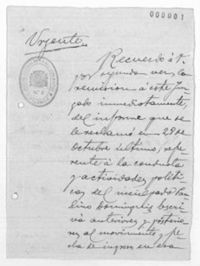 000001
Urgente.
Recuerdo á V.
por segunda vez, la
remision á este Juz-
gado inmediatamente,
del informe que se
le reclamó en 29 de
Octubre último, refe-
rente á la conducta
y actividades políti-
cas del
lino Dominguez
anteriores y posterio-
res al movimiento, y fe-
cha de ingreso en esa